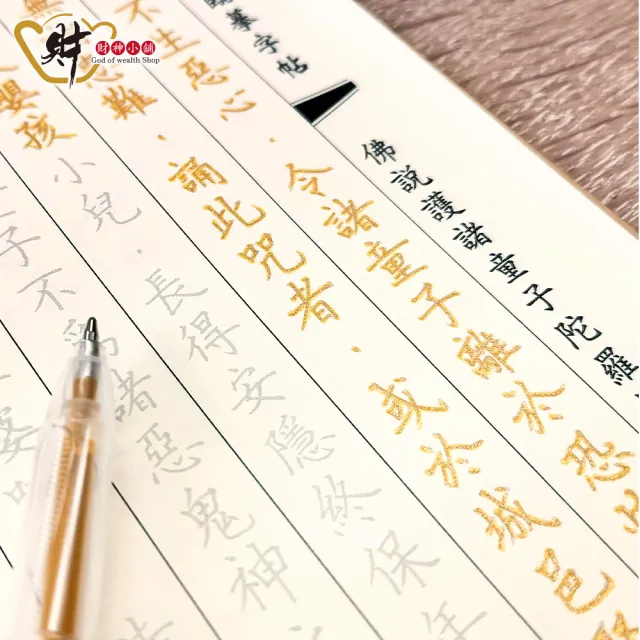 財
財神小舖
God of wealth Shop
摹字帖
佛說護諸童子陀羅
不生惡心．令諸童子離於恐
難．誦此咒者．或於城邑
嬰孩小兒．長得安隱終保年
子不為諸惡鬼神